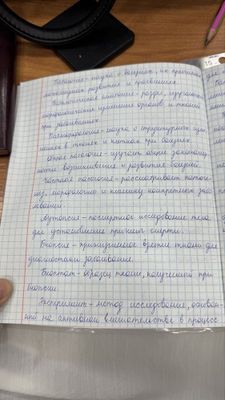 Патология - наука о болезнях, их причинах,
механизмах развития и проявлениях.
Патологическая анатомия - раздел, изучающий
морфологические изменения органов и тканей
при заболеваниях.
Патоморфология - наука о структурных изме-
нениях в тканях и клетках при болезнях.
Общая патология - изучает общие закономер-
ности возникновения и развития болезней.
Частная патология - рассматривает патоге-
нез, морфологию и клинику конкретных забо-
леваний.
Аутопсия - посмертное исследование тела
для установления причины смерти.
Биопсия - прижизненное взятие ткани для
диагностики заболевания.
Биоптат - образец ткани, полученный при
биопсии.
Эксперимент - метод исследования, основан-
ный на активном вмешательстве в процесс